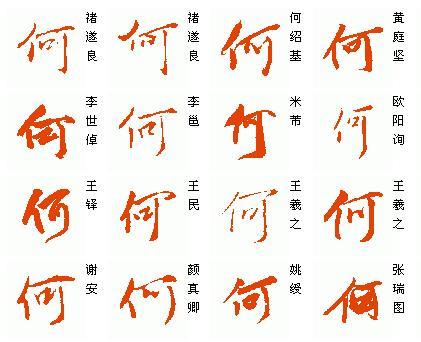 何 褚遂良 何 褚遂良 何 何绍基 何 黄庭坚
何 李世倬 何 李邕 何 米芾 何 欧阳询
何 王铎 何 王民 何 王羲之 何 王羲之
何 谢安 何 颜真卿 何 姚绶 何 张瑞图